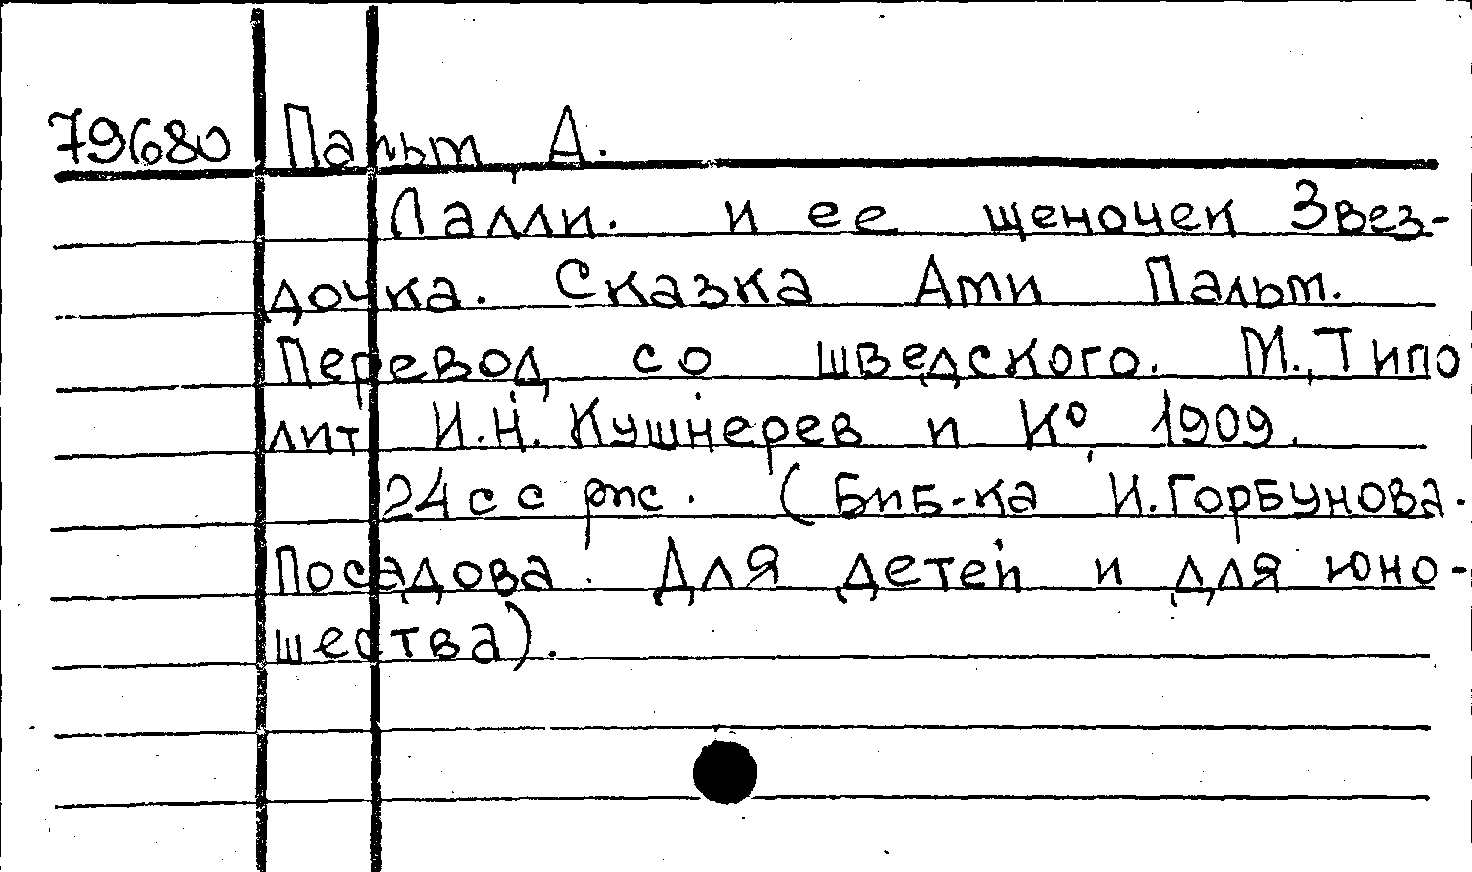 79680 Пальм, А.
Лалли. и ее щеночек Звез-
дочка. Сказка Ами Пальм.
Перевод со шведского. М., Типо
лит. И.Н. Кушнерев и Кº, 1909.
24 с с рис. (Биб-ка И.Горбунова-
Посадова. Для детей и для юно-
шества).